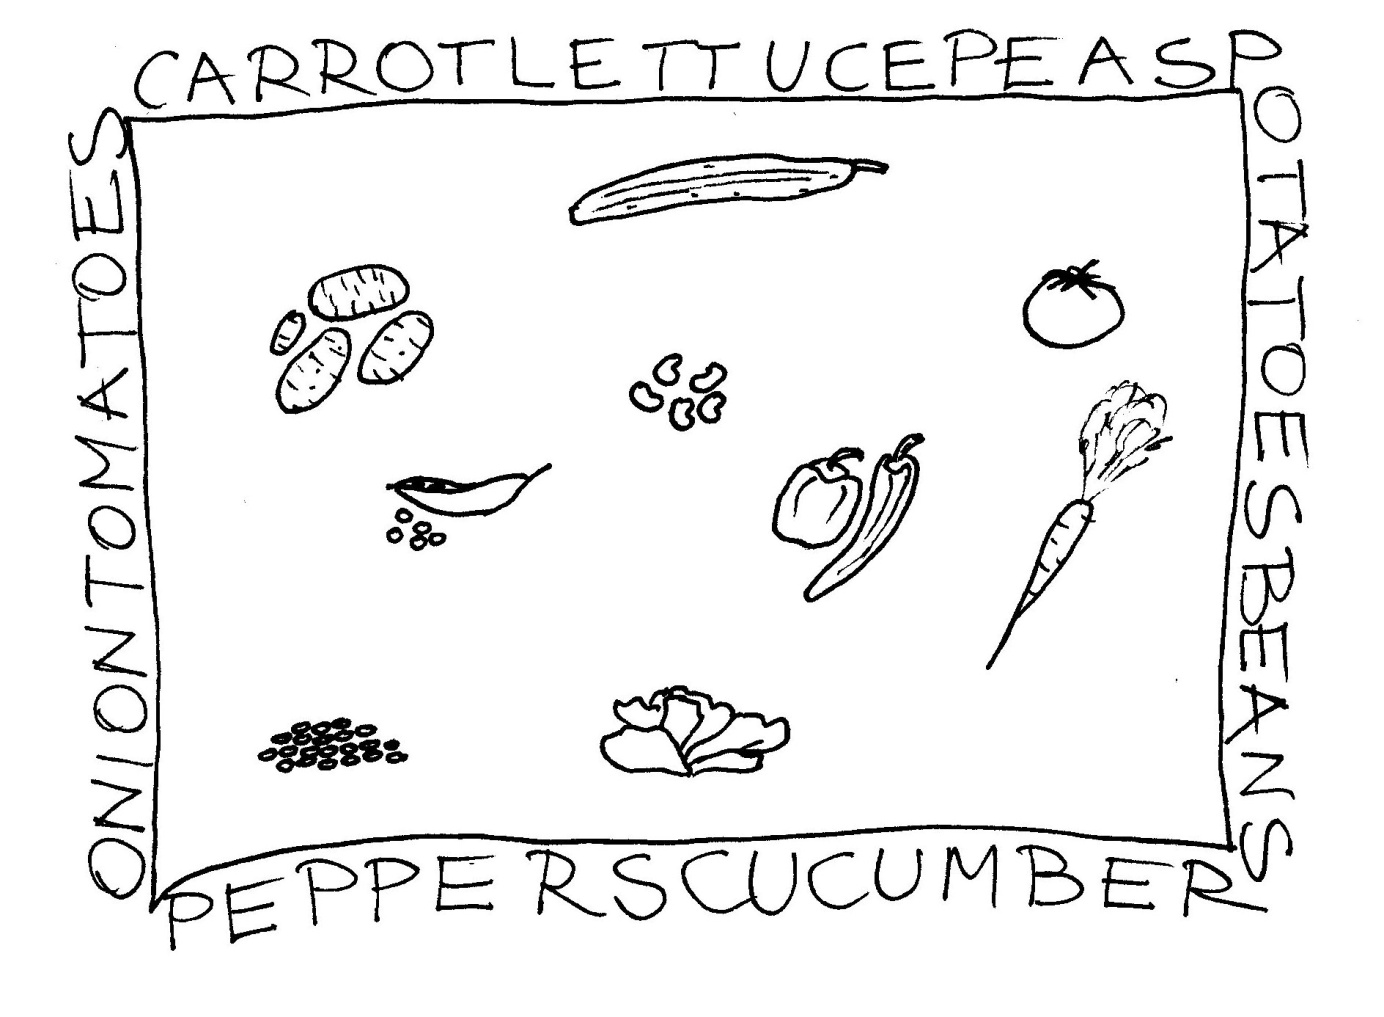 CARROTLETTUCEPEASP
OTATOESBEANS
PEPPERSCUCUMBER
ONIONTOMATOES